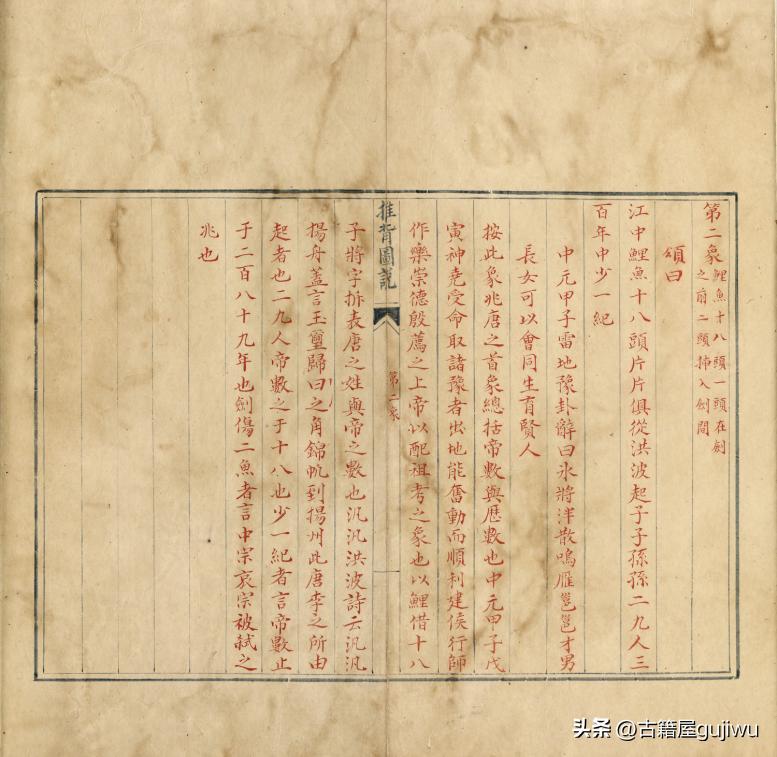 第二象鯉魚十八頭一頭在劍
之前二頭插入劍間
頌曰
江中鯉魚十八頭片片俱從洪波起子子孫孫二九人三
百年中少一紀
中元甲子雷地豫卦辭曰氷將泮散鳴雁邕邕才男
長女可以會同生育賢人
按此象兆唐之首象總括帝數與歷數也中元甲子戊
寅神堯受命取諸豫者出地能奮動而順利建侯行師
作樂崇德殷薦之上帝以配祖考之象也以鯉借十八
推背圖說
第二象
子將字拆表唐之姓與帝之數也汎汎洪波詩云汎汎
揚舟蓋言玉璽歸曰之角錦帆到揚州此唐李之所由
起者也二九人帝數之于十八也少一紀者言帝數止
于二百八十九年也劍傷二魚者言中宗哀宗被弒之
兆也
头条 @古籍屋gujiwu